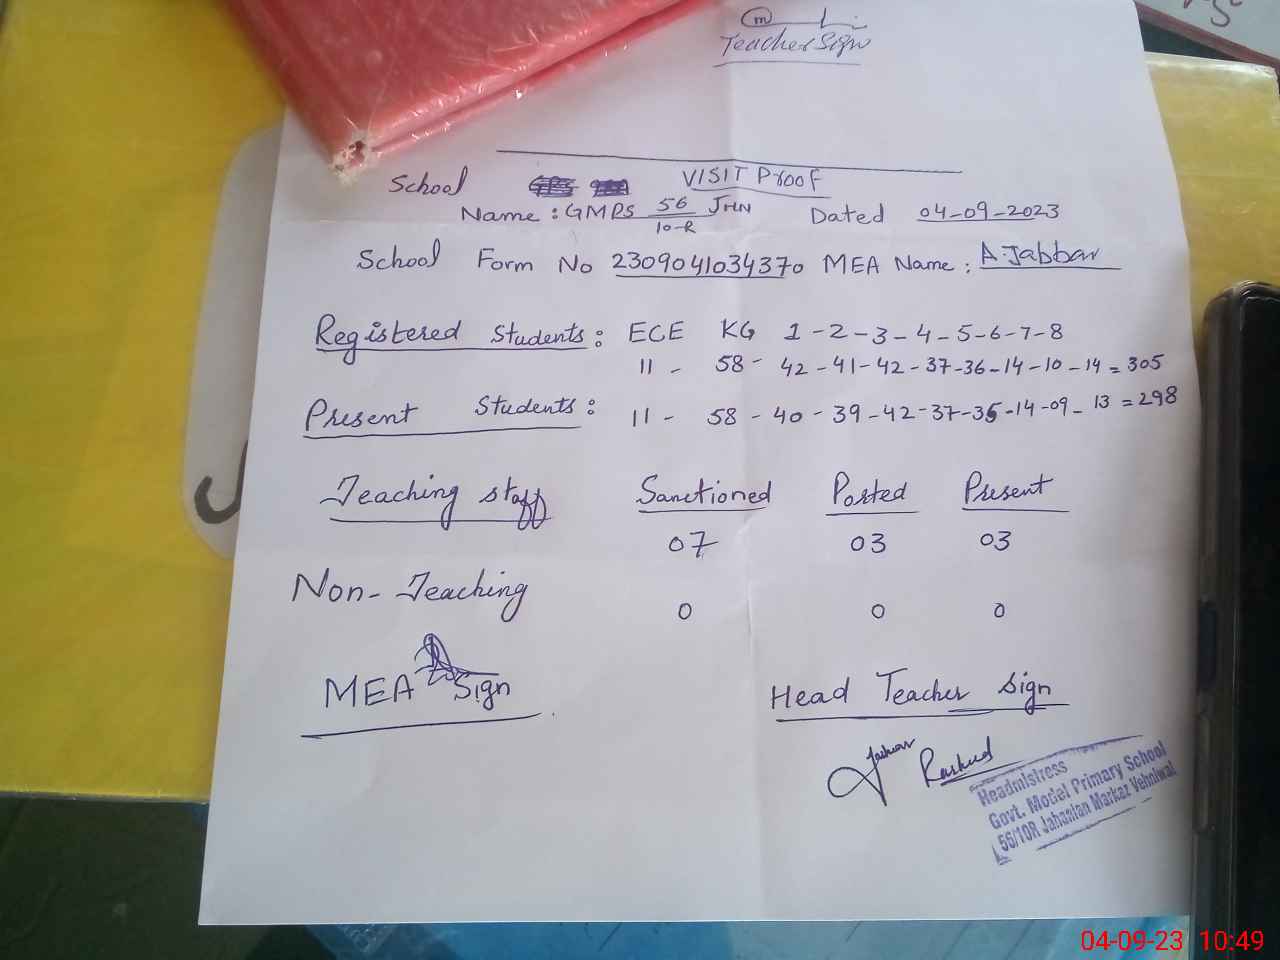 Teacher Sign
VISIT Proof
School
Name : GMPS 56/10-R JHN Dated 04-09-2023
School Form No 2309041034370 MEA Name : A.Jabbar
Registered Students : ECE KG 1 - 2 - 3 - 4 - 5 - 6 - 7 - 8
11 - 58 - 42 - 41 - 42 - 37 - 36 - 14 - 10 - 14 = 305
Present Students : 11 - 58 - 40 - 39 - 42 - 37 - 35 - 14 - 09 - 13 = 298
Teaching staff Sanctioned Posted Present
07 03 03
Non-Teaching 0 0 0
MEA Sign
Head Teacher Sign
Headmistress
Govt. Model Primary School
56/10R Jahanian Markaz Vehniwal
04-09-23 10:49